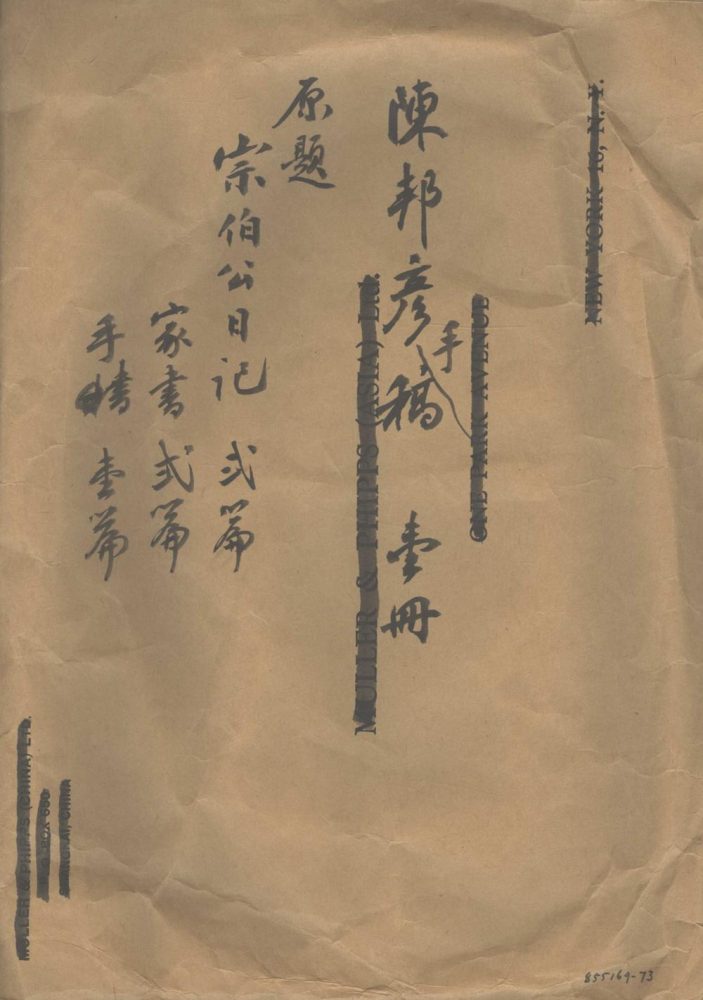 陳邦彥手稿 壹冊
原題
宗伯公日记 弍篇
家書 弍篇
手 壹篇
NEW YORK 16, N.Y.
ONE PARK AVENUE
MULLER & PHIPPS (ASIA) Ltd.
MULLER & PHIPPS (CHINA) LTD.
BOX 690
CHINA
855169-73